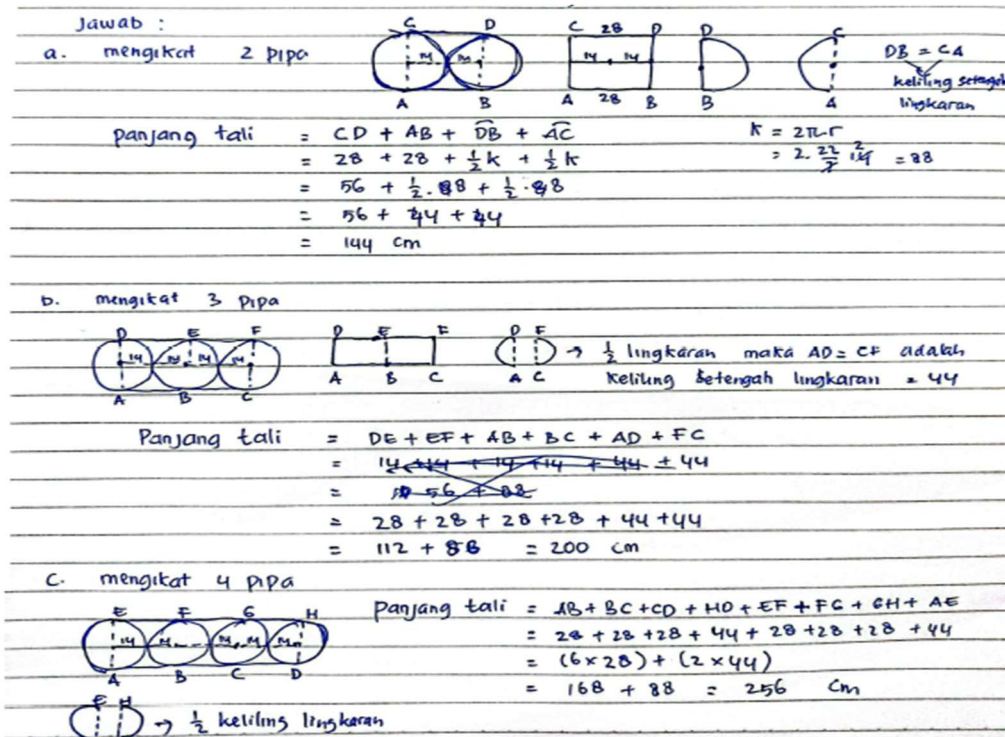 Jawab :
a. mengikat 2 pipa
C D
14 14
A B
C 28 D
14 14
A 28 B
D
B
C
A
DB = CA
keliling setengah
lingkaran
panjang tali = CD + AB + DB + AC
= 28 + 28 + 1/2 k + 1/2 k
= 56 + 1/2 . 88 + 1/2 . 88
= 56 + 44 + 44
= 144 cm
K = 2πr
= 2. 22/7 14 2 = 88
b. mengikat 3 pipa
D E F
14 14 14 14
A B C
D E F
A B C
D F
A C
→ 1/2 lingkaran maka AD = CF adalah
keliling setengah lingkaran = 44
Panjang tali = DE + EF + AB + BC + AD + FC
= 14 + 14 + 14 + 14 + 44 + 44
= 56 + 88
= 28 + 28 + 28 + 28 + 44 + 44
= 112 + 88 = 200 cm
C. mengikat 4 pipa
E F G H
14 14 14 14 14
A B C D
E H
→ 1/2 keliling lingkaran
Panjang tali = AB + BC + CD + HD + EF + FG + GH + AE
= 28 + 28 + 28 + 44 + 28 + 28 + 28 + 44
= (6 x 28) + (2 x 44)
= 168 + 88 = 256 cm